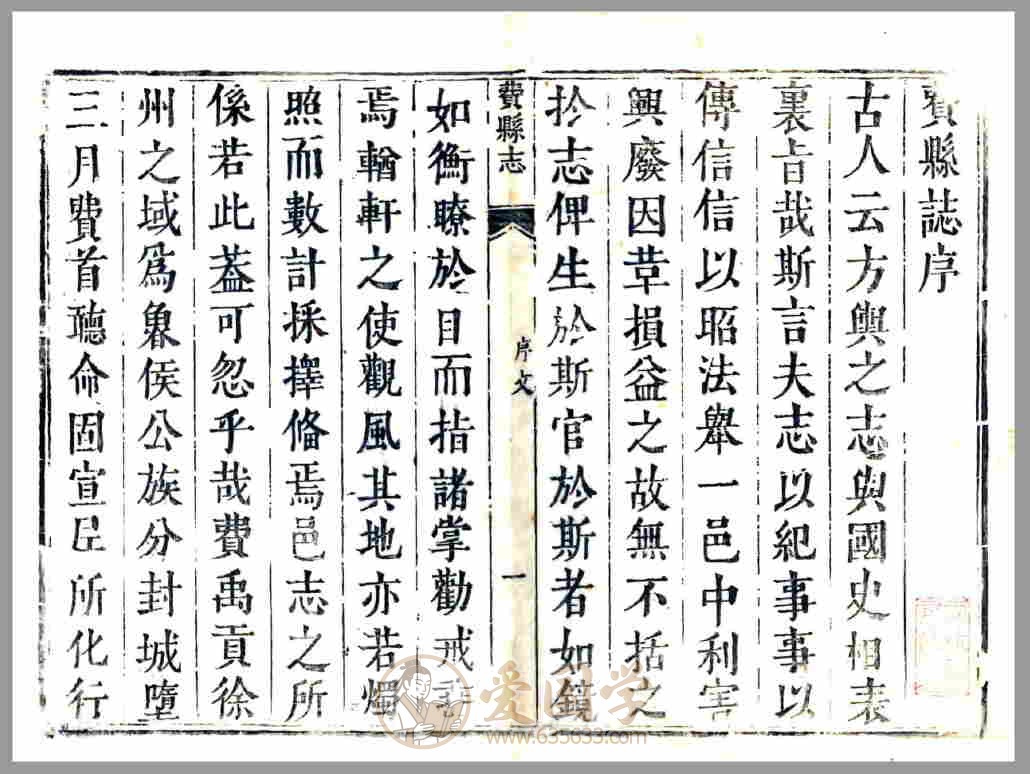 費縣誌序
古人云方輿之志與國史相表
裏旨哉斯言夫志以紀事事以
傳信信以昭法舉一邑中利害
興廢因革損益之故無不括之
扵志俾生於斯官於斯者如鏡
費縣志
序文
一
如衡瞭於目而指諸掌勸戒
焉輶軒之使觀風其地亦若燭
照而數計採擇俻焉邑志之所
係若此葢可忽乎哉費禹貢徐
州之域爲魯侯公族分封城墮
三月費首聽命固宣臣所化行
爱国学
www.635633.com